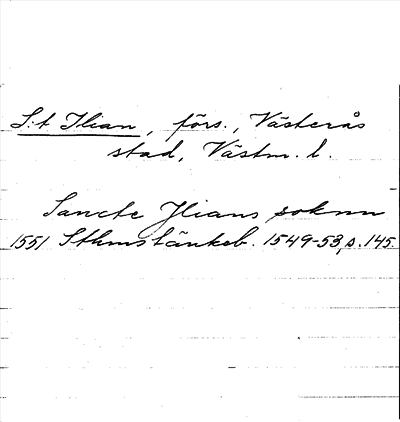 S:t Ilian, förs., Västerås
stad, Västm. l.
Sancte Jlians soknn
1551 Sthmstänkeb. 1549-53, s. 145.